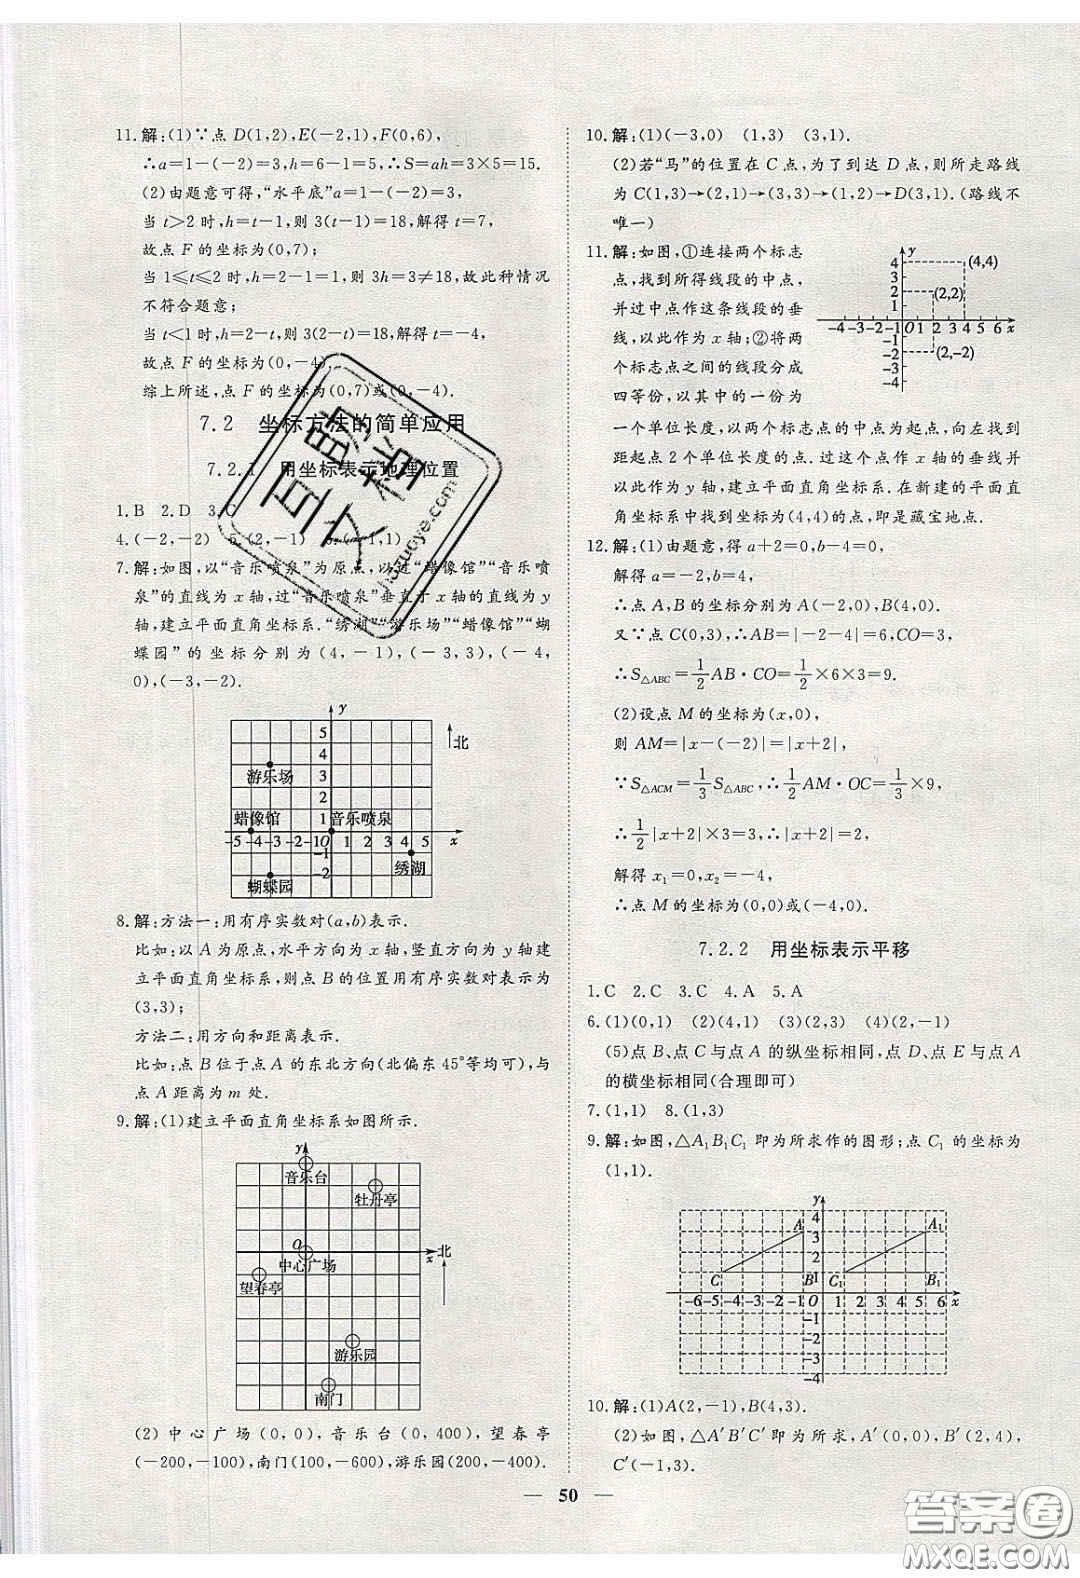 11.解:(1)∵点D(1,2),E(-2,1),F(0,6),
∴a=1-(-2)=3,h=6-1=5,∴S=ah=3×5=15.
(2)由题意可得,“水平底”a=1-(-2)=3,
当t>2时,h=t-1,则3(t-1)=18,解得t=7,
故点F的坐标为(0,7);
当1≤t≤2时,h=2-1=1,则3h=3≠18,故此种情况
不符合题意;
当t<1时,h=2-t,则3(2-t)=18,解得t=-4,
故点F的坐标为(0,-4).
综上所述,点F的坐标为(0,7)或(0,-4).
7.2 坐标方法的简单应用
7.2.1 用坐标表示地理位置
1.B 2.D 3.C
4.(-2,-2) 5.(2,-1) 6.(-1,1)
7.解:如图,以“音乐喷泉”为原点,以过“蜡像馆”“音乐喷
泉”的直线为x轴,过“音乐喷泉”垂直于x轴的直线为y
轴,建立平面直角坐标系.“绣湖”“游乐场”“蜡像馆”“蝴
蝶园”的坐标分别为(4,-1),(-3,3),(-4,
0),(-3,-2).
y
5
4
3
2
1
北
游乐场
蜡像馆
音乐喷泉
-5 -4 -3 -2 -1 O 1 2 3 4 5 x
-1
-2
绣湖
蝴蝶园
8.解:方法一:用有序实数对(a,b)表示.
比如:以A为原点,水平方向为x轴,竖直方向为y轴建
立平面直角坐标系,则点B的位置用有序实数对表示为
(3,3);
方法二:用方向和距离表示.
比如:点B位于点A的东北方向(北偏东45°等均可),与
点A距离为m处.
9.解:(1)建立平面直角坐标系如图所示.
y
音乐台
牡丹亭
O
x
北
中心广场
望春亭
游乐园
南门
(2)中心广场(0,0),音乐台(0,400),望春亭
(-200,-100),南门(100,-600),游乐园(200,-400).
10.解:(1)(-3,0) (1,3) (3,1).
(2)若“马”的位置在C点,为了到达D点,则所走路线
为C(1,3)→(2,1)→(3,3)→(1,2)→D(3,1).(路线不
唯一)
11.解:如图,①连接两个标志
点,找到所得线段的中点,
并过中点作这条线段的垂
线,以此作为x轴;②将两
个标志点之间的线段分成
四等份,以其中的一份为
一个单位长度,以两个标志点的中点为起点,向左找到
距起点2个单位长度的点.过这个点作x轴的垂线并
以此作为y轴,建立平面直角坐标系.在新建的平面直
角坐标系中找到坐标为(4,4)的点,即是藏宝地点.
y
4
3
2
1
(4,4)
(2,2)
-4 -3 -2 -1 O 1 2 3 4 5 6 x
-1
-2
-3
-4
(2,-2)
12.解:(1)由题意,得a+2=0,b-4=0,
解得a=-2,b=4,
∴点A,B的坐标分别为A(-2,0),B(4,0).
又∵点C(0,3),∴AB=|-2-4|=6,CO=3,
∴S△ABC=1/2AB·CO=1/2×6×3=9.
(2)设点M的坐标为(x,0),
则AM=|x-(-2)|=|x+2|,
∵S△ACM=1/3S△ABC,∴1/2AM·OC=1/3×9,
∴1/2|x+2|×3=3,∴|x+2|=2,
解得x₁=0,x₂=-4,
∴点M的坐标为(0,0)或(-4,0).
7.2.2 用坐标表示平移
1.C 2.C 3.C 4.A 5.A
6.(1)(0,1) (2)(4,1) (3)(2,3) (4)(2,-1)
(5)点B、点C与点A的纵坐标相同,点D、点E与点A
的横坐标相同(合理即可)
7.(1,1) 8.(1,3)
9.解:如图,△A₁B₁C₁即为所求作的图形;点C₁的坐标为
(1,1).
y
4
3
2
1
A
A₁
C
B
C₁
B₁
-6 -5 -4 -3 -2 -1 O 1 2 3 4 5 6 x
-1
-2
-3
-4
10.解:(1)A(2,-1),B(4,3).
(2)如图,△A′B′C′即为所求,A′(0,0),B′(2,4),
C′(-1,3).
50
答案圈
MXQE.COM